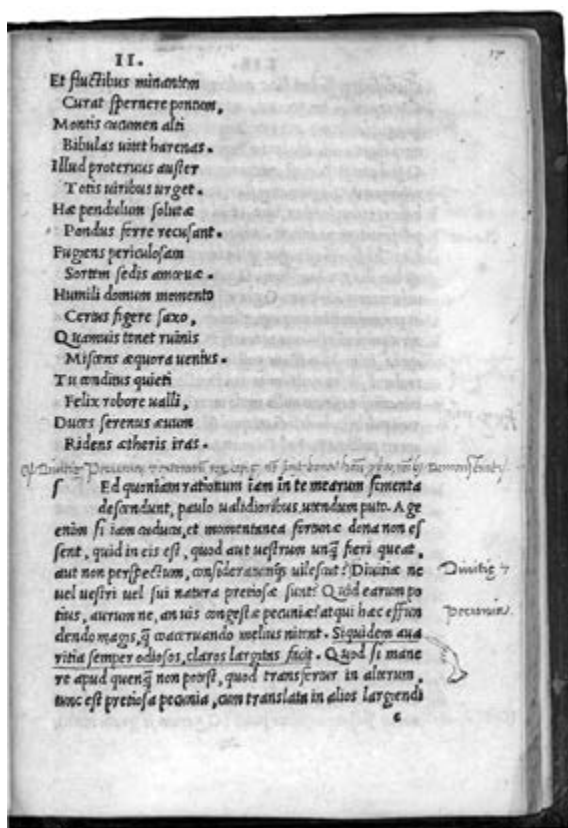 II.
17
Et fluctibus minantem
Curat spernere pontum,
Montis cacumen alti
Bibulas uitet harenas.
Illud proteruus auster
Totis uiribus urget.
Hæ pendulum solutæ
Pondus ferre recusant.
Fugiens periculosam
Sortem sedis amœnæ.
Humili domum memento
Certus figere saxo,
Quamuis tonet ruinis
Miscens æquora uentus.
Tu conditus quieti
Felix robore ualli,
Duces serenus æuum
Ridens ætheris iras.
S Ed quoniam rationum iam in te mearum fomenta
descendunt, paulo ualidioribus utendum puto. Age
enim si iam caduca, et momentanea fortunæ dona non es
sent, quid in eis est, quod aut uestrum unq̃ fieri queat,
aut non perspectum, consideratumq́; uilescat? Diuitiæ ne
uel uestri uel sui natura pretiosæ sunt? Quid earum po
tius, aurum ne, an uis congestæ pecuniæ? atqui hæc effun
dendo magis, q̃ coaceruando melius nitent. Siquidem aua
ritia semper odiosos, claros largitas facit. Quod si mane
re apud quenq̃ non potest, quod transfertur in alterum,
tunc est pretiosa pecunia, cum translata in alios largiendi
c
Diuitię
pecunia